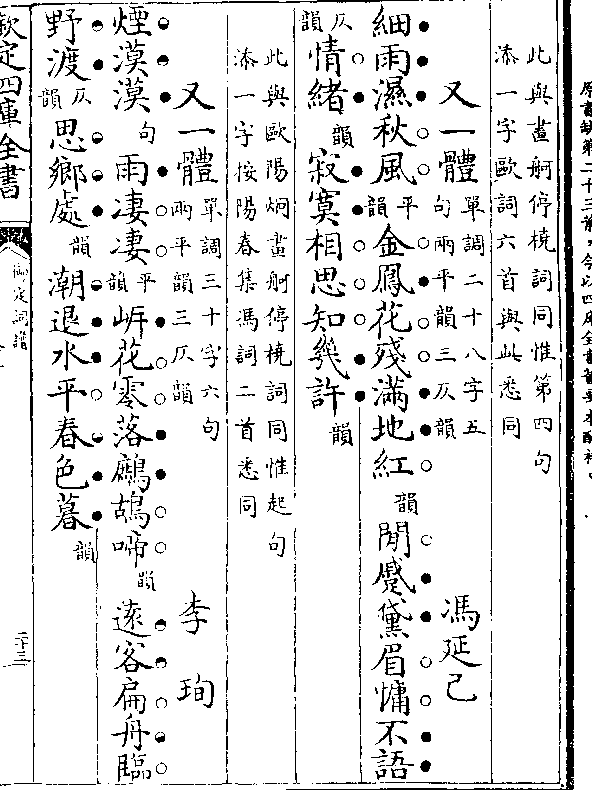 原書缺第二十三前,今以四庫全書薈要本配補。
此與畫舸停橈詞同惟第四句
添一字歐詞六首與此悉同
又一體 單調二十八字五
句兩平韻三仄韻 馮延已
細雨濕秋風 平韻 金鳳花殘滿地紅 韻 閒蹙黛眉慵不語
仄韻 情緒 韻 寂寞相思知幾許 韻
此與歐陽炯畫舸停橈詞同惟起句
添一字按陽春集馮詞二首悉同
又一體 單調三十字六句
兩平韻三仄韻 李珣
煙漠漠 句 雨凄凄 平韻 岍花零落鷓鴣啼 韻 遠客扁舟臨
野渡 仄韻 思鄉處 韻 潮退水平春色暮 韻
欽定四庫全書 御定詞譜 二十三